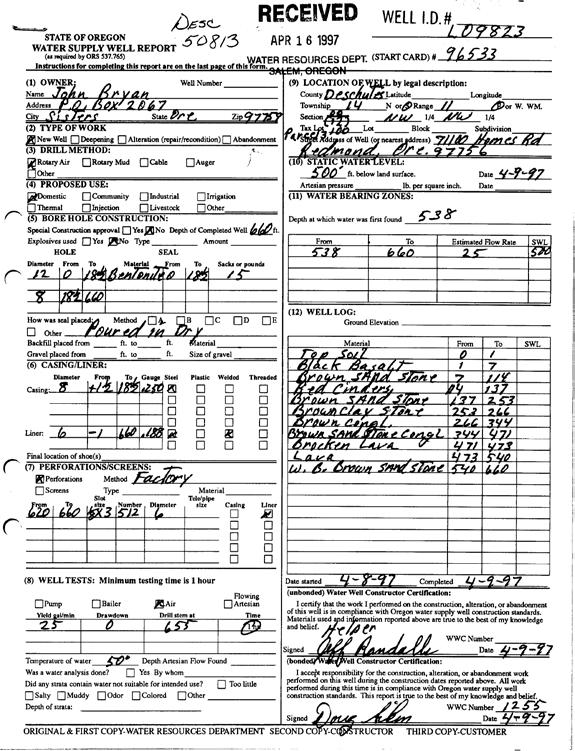 Desc 50813
RECEIVED
APR 16 1997
WATER RESOURCES DEPT.
SALEM, OREGON
WELL I.D.# L09823
(START CARD) # 96533
STATE OF OREGON
WATER SUPPLY WELL REPORT
(as required by ORS 537.765)
Instructions for completing this report are on the last page of this form.
(1) OWNER: Well Number
Name John Bryan
Address P.O. Box 2067
City Sisters State Ore Zip 97759
(2) TYPE OF WORK
New Well Deepening Alteration (repair/recondition) Abandonment
(3) DRILL METHOD:
Rotary Air Rotary Mud Cable Auger
Other
(4) PROPOSED USE:
Domestic Community Industrial Irrigation
Thermal Injection Livestock Other
(5) BORE HOLE CONSTRUCTION:
Special Construction approval Yes No Depth of Completed Well 660 ft.
Explosives used Yes No Type Amount
HOLE SEAL
Diameter From To Material From To Sacks or pounds
12 0 18½ Bentonite 0 18½ 15
8 18½ 660
How was seal placed: Method A B C D E
Other Poured in Dry
Backfill placed from ft. to ft. Material
Gravel placed from ft. to ft. Size of gravel
(6) CASING/LINER:
Diameter From To Gauge Steel Plastic Welded Threaded
Casing: 8 +1½ 18½ .250
Liner: 6 -1 660 .188
Final location of shoe(s)
(7) PERFORATIONS/SCREENS:
Perforations Method Factory
Screens Type Material
From To Slot size Number Diameter Tele/pipe size Casing Liner
620 660 512 6
(8) WELL TESTS: Minimum testing time is 1 hour
Pump Bailer Air Flowing Artesian
Yield gal/min Drawdown Drill stem at Time
25 0 655 1 hr.
Temperature of water 50° Depth Artesian Flow Found
Was a water analysis done? Yes By whom
Did any strata contain water not suitable for intended use? Too little
Salty Muddy Odor Colored Other
Depth of strata:
(9) LOCATION OF WELL by legal description:
County Deschutes Latitude Longitude
Township 14 N or S Range 11 E or W. WM.
Section NW 1/4 NW 1/4
Tax Lot 100 Lot Block Subdivision
Parcel 3
Street Address of Well (or nearest address) 71100 Holmes Rd
Redmond, Ore. 97756
(10) STATIC WATER LEVEL:
500 ft. below land surface. Date 4-9-97
Artesian pressure lb. per square inch. Date
(11) WATER BEARING ZONES:
Depth at which water was first found 538
From To Estimated Flow Rate SWL
538 660 25 500
(12) WELL LOG:
Ground Elevation
Material From To SWL
Top Soil 0 1
Black Basalt 1 7
Brown SAND Stone 7 114
Red Cinders 114 137
Brown SAND Stone 137 253
Brown Clay Stone 253 266
Brown Congl. 266 344
Brown SAND Stone Congl 344 471
Brocken Lava 471 473
Lava 473 540
W. B. Brown SAND Stone 540 660
Date started 4-8-97 Completed 4-9-97
(unbonded) Water Well Constructor Certification:
I certify that the work I performed on the construction, alteration, or abandonment
of this well is in compliance with Oregon water supply well construction standards.
Materials used and information reported above are true to the best of my knowledge
and belief. Helper
WWC Number
Signed Jeff Randalls Date 4-9-97
(bonded) Water Well Constructor Certification:
I accept responsibility for the construction, alteration, or abandonment work
performed on this well during the construction dates reported above. All work
performed during this time is in compliance with Oregon water supply well
construction standards. This report is true to the best of my knowledge and belief.
WWC Number 1255
Signed Doug Date 4-9-97
ORIGINAL & FIRST COPY-WATER RESOURCES DEPARTMENT SECOND COPY-CONSTRUCTOR THIRD COPY-CUSTOMER